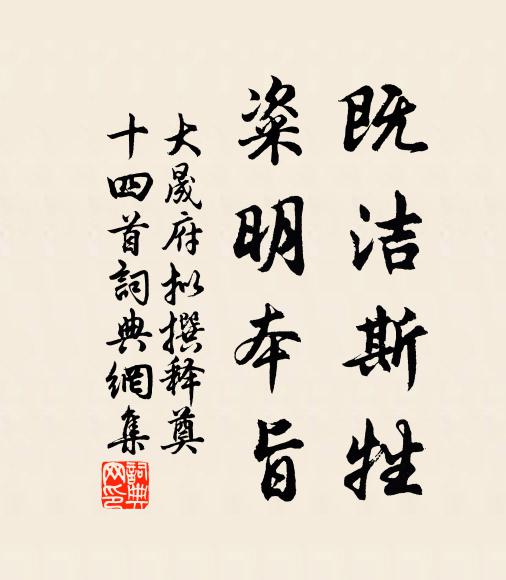 既洁斯牲
粢明本旨
大晟府拟撰释奠
十四首詞典網集
詞典網印